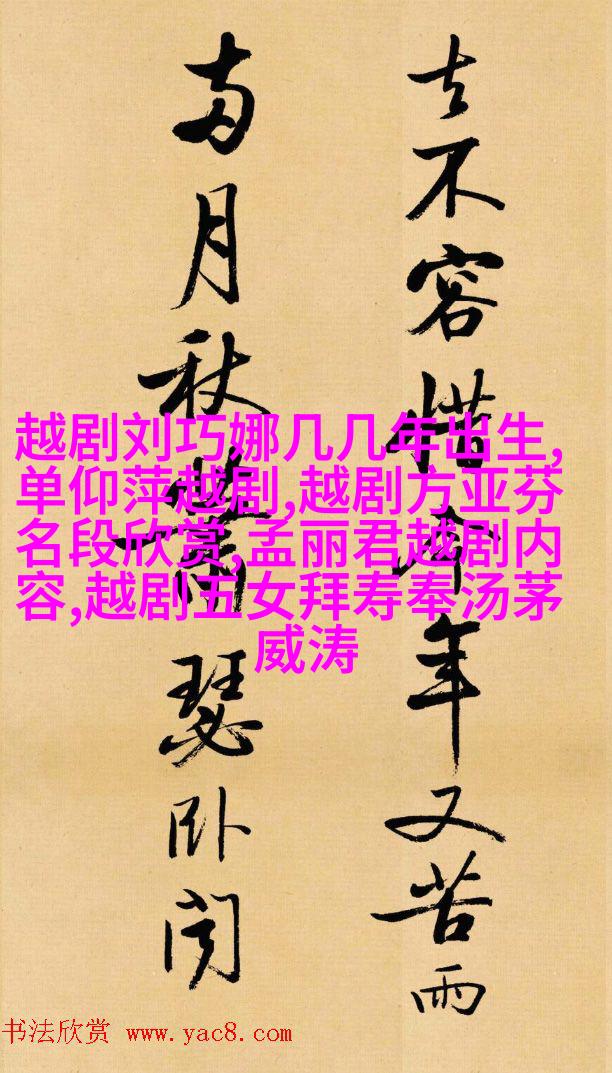 去不容惜今年又苦雨
兩月秋蕭瑟卧闻
越剧刘巧娜几几年出生,
单仰萍越剧,越剧方亚芬
名段欣赏,孟丽君越剧内
容,越剧五女拜寿奉汤茅
威涛
书法欣赏 www.yac8.com